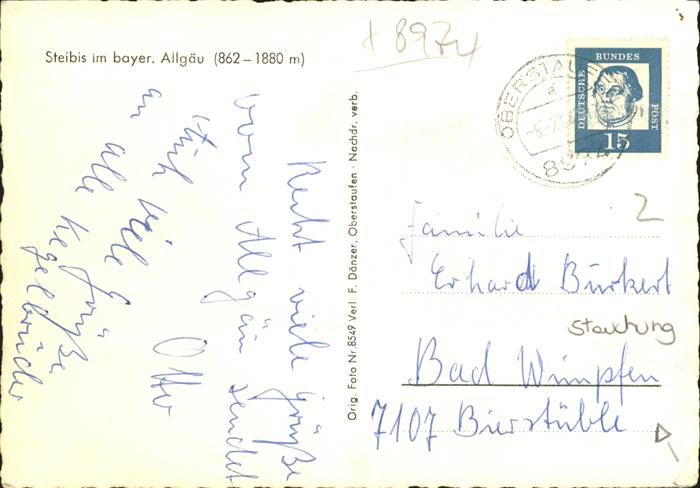 Steibis im bayer. Allgäu (862–1880 m)
+ 8974
OBERSTAUFEN
a
8974
DEUTSCHE
BUNDES
POST
15
Recht viele Grüße
vom Allgäu sendet
Otto
Auch viele Grüße
an alle Kegelbrüder
Orig. Foto Nr. 8549 Verl. F. Dänzer, Oberstaufen · Nachdr. verb.
2
Familie
Erhard Burkert
Stauchung
Bad Wimpfen
7107 Bierstüble